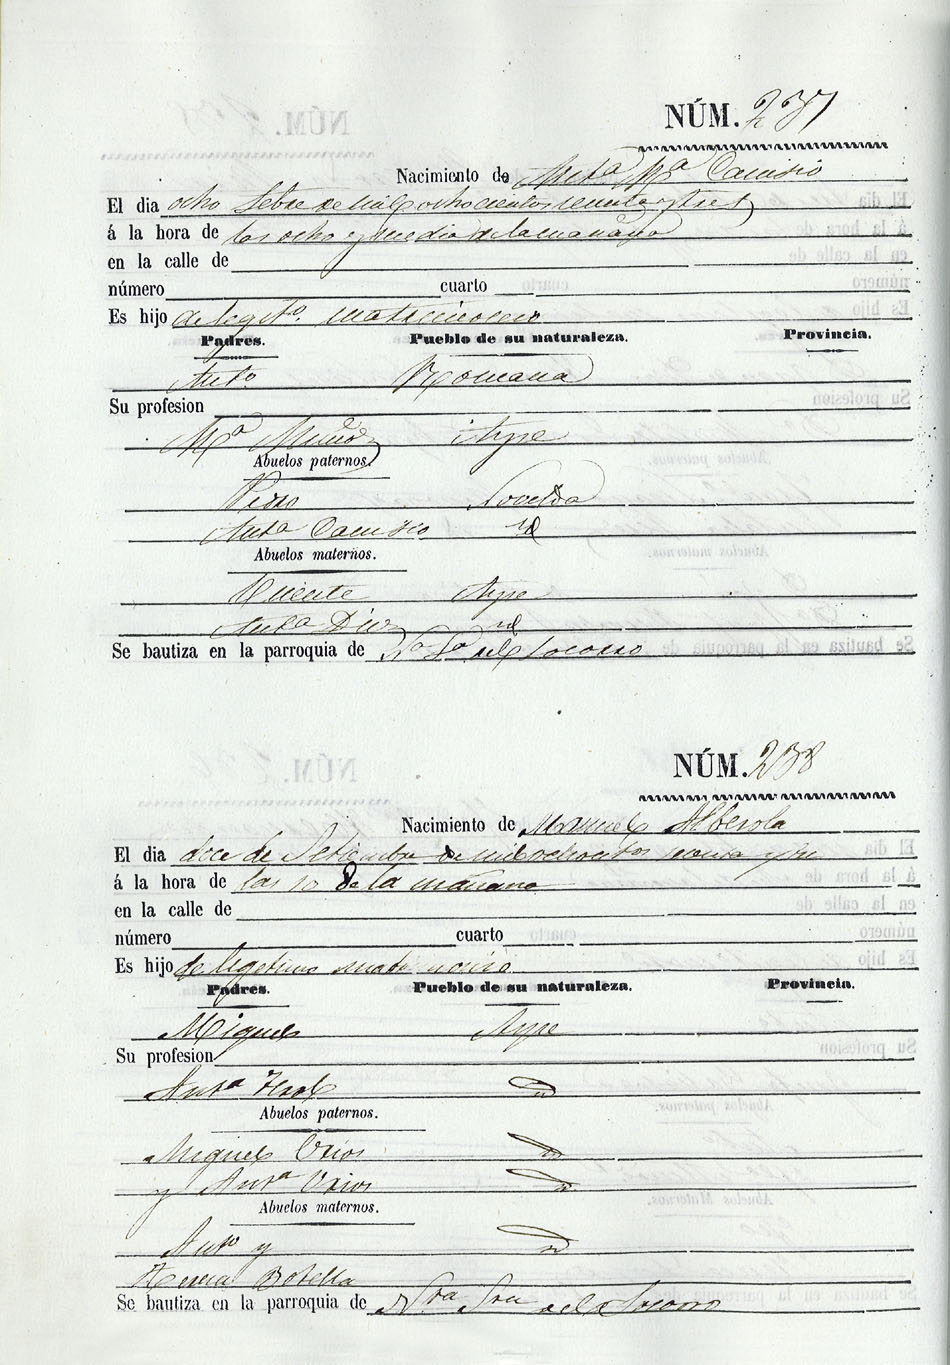 NÚM. 237
Nacimiento de Anta Ma
El dia ocho Setre de mil ochocientos setenta y tres
á la hora de las ocho y media de la mañana
en la calle de
número cuarto
Es hijo de legito. matrimonio
Padres. Pueblo de su naturaleza. Provincia.
Anto Romana
Su profesion
Ma Aspe
Abuelos paternos.
Pedro Novelda
Anta id
Abuelos maternos.
Vicente Aspe
Anta Diez id
Se bautiza en la parroquia de Na Sa del Socorro
NÚM. 238
Nacimiento de Manuel Alberola
El dia doce de Setiembre de mil ochocntos y tres
á la hora de las 10 de la mañana
en la calle de
número cuarto
Es hijo de legetimo matrimonio
Padres. Pueblo de su naturaleza. Provincia.
Miguel Aspe
Su profesion
Anta
Abuelos paternos.
Miguel
y Anta
Abuelos maternos.
Anto y
Teresa Botella
Se bautiza en la parroquia de Ntra Sra del Socorro